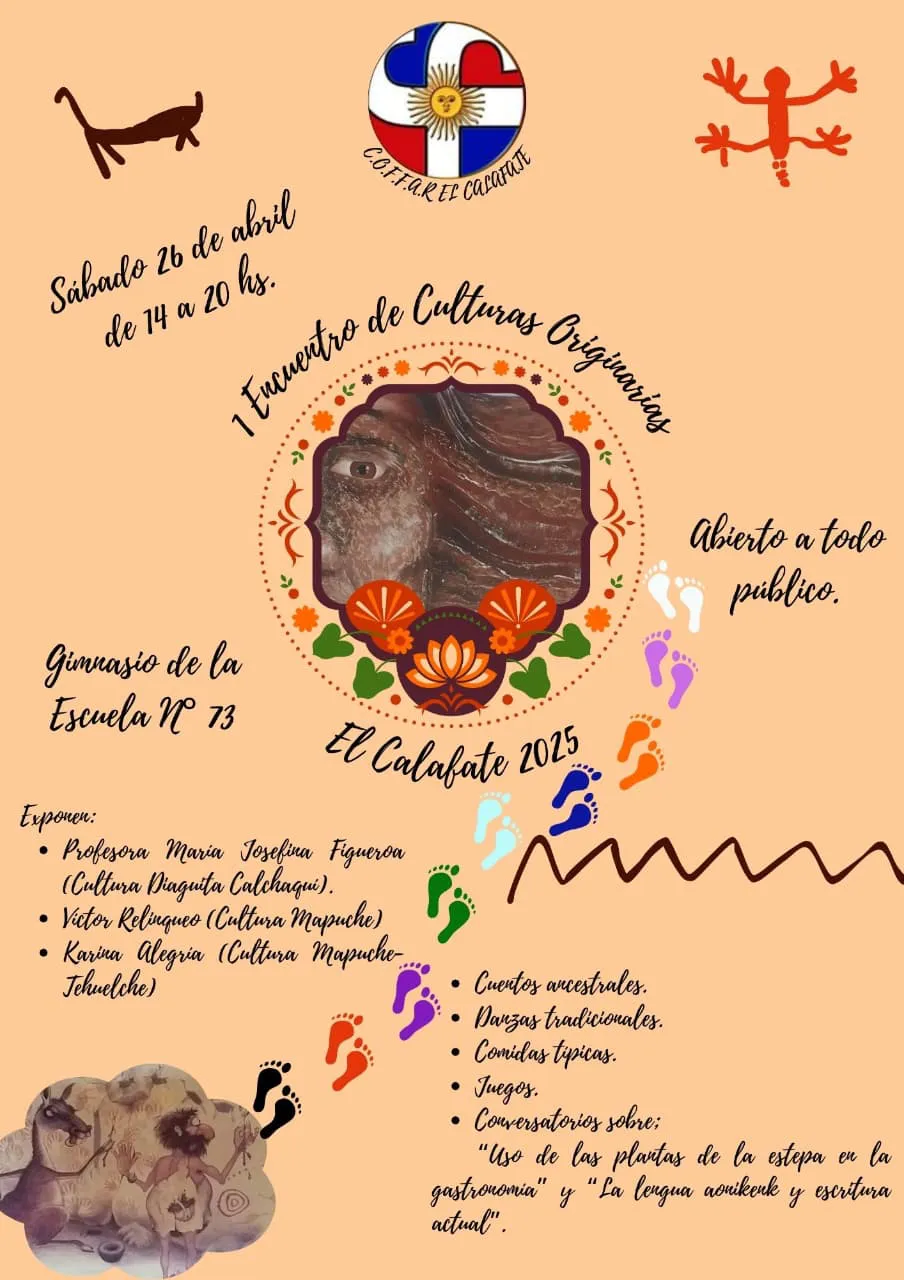 C.O.F.F.A.R EL CALAFATE
Sábado 26 de abril
de 14 a 20 hs.
1 Encuentro de Culturas Originarias
Abierto a todo
público.
Gimnasio de la
Escuela N° 73
El Calafate 2025
Exponen:
• Profesora María Josefina Figueroa
(Cultura Diaguita Calchaquí).
• Víctor Relinqueo (Cultura Mapuche)
• Karina Alegría (Cultura Mapuche-
Tehuelche)
• Cuentos ancestrales.
• Danzas tradicionales.
• Comidas típicas.
• Juegos.
• Conversatorios sobre;
"Uso de las plantas de la estepa en la
gastronomía" y "La lengua aonikenk y escritura
actual".